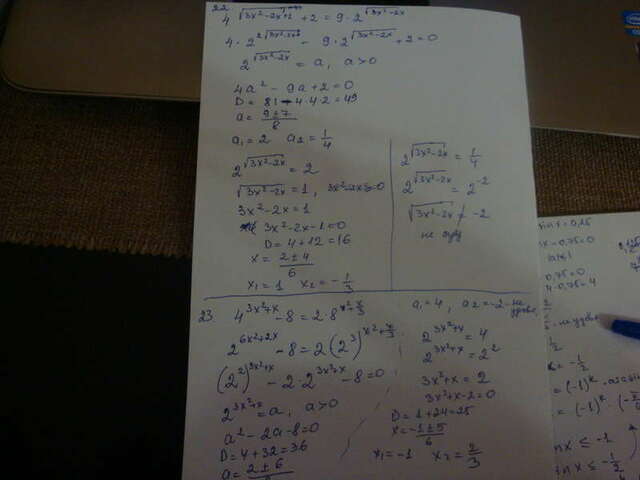 22.
4^{\sqrt{3x²-2x}+1} + 2 = 9·2^{\sqrt{3x²-2x}}
4·2^{2\sqrt{3x²-2x}} - 9·2^{\sqrt{3x²-2x}} + 2 = 0
2^{\sqrt{3x²-2x}} = a, a>0
4a² - 9a + 2 = 0
D = 81 - 4·4·2 = 49
a = \frac{9±7}{8}
a₁ = 2 a₂ = \frac{1}{4}
2^{\sqrt{3x²-2x}} = 2
\sqrt{3x²-2x} = 1, 3x²-2x≥0
3x²-2x = 1
3x²-2x-1=0
D = 4+12 = 16
x = \frac{2±4}{6}
x₁ = 1 x₂ = -\frac{1}{3}
2^{\sqrt{3x²-2x}} = \frac{1}{4}
2^{\sqrt{3x²-2x}} = 2^{-2}
\sqrt{3x²-2x} ≠ -2
не
23. 4^{3x²+x} - 8 = 2·8^{x²+\frac{x}{3}}
2^{6x²+2x} - 8 = 2(2³)^{x²+\frac{x}{3}}
(2²)^{3x²+x} - 2·2^{3x²+x} - 8 = 0
2^{3x²+x} = a, a>0
a² - 2a - 8 = 0
D = 4+32 = 36
a = 2±6
a₁ = 4, a₂ = -2 - не
2^{3x²+x} = 4
2^{3x²+x} = 2²
3x²+x = 2
3x²+x-2=0
D = 1+24=25
x = \frac{-1±5}{6}
x₁ = -1 x₂ = \frac{2}{3}
x - 0,75 = 0
0,75 = 0
-\frac{1}{2}
= (-1)^k
= (-1)^k · (-
x ≤ -1
x ≤ -\frac{1}{2}